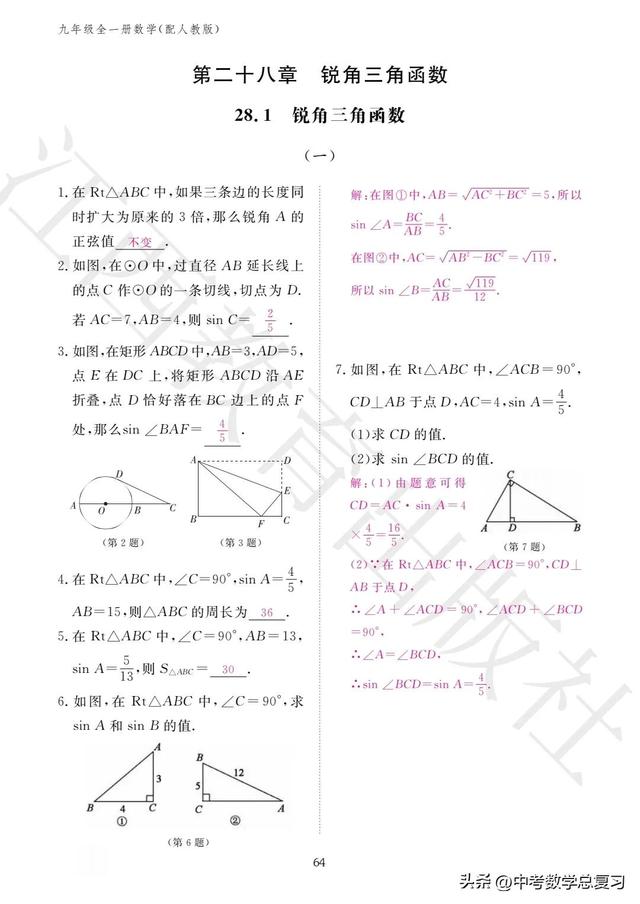 九年级全一册数学(配人教版)
第二十八章 锐角三角函数
28.1 锐角三角函数
(一)
1.在 Rt△ABC 中,如果三条边的长度同
时扩大为原来的 3 倍,那么锐角 A 的
正弦值 不变 .
2.如图,在⊙O 中,过直径 AB 延长线上
的点 C 作⊙O 的一条切线,切点为 D.
若 AC=7,AB=4,则 sin C= 2/5 .
3.如图,在矩形 ABCD 中,AB=3,AD=5,
点 E 在 DC 上,将矩形 ABCD 沿 AE
折叠,点 D 恰好落在 BC 边上的点 F
处,那么sin ∠BAF= 4/5 .
A O B C D
(第 2 题)
A D E B F C
(第 3 题)
4.在 Rt△ABC 中,∠C=90°,sin A=4/5,
AB=15,则△ABC 的周长为 36 .
5.在 Rt△ABC 中,∠C=90°,AB=13,
sin A=5/13,则 S△ABC= 30 .
6.如图,在 Rt△ABC 中,∠C=90°,求
sin A 和 sin B 的值.
A 3 B 4 C
①
B 12 5 C A
②
(第 6 题)
解:在图①中,AB=√(AC²+BC²)=5,所以
sin ∠A=BC/AB=4/5.
在图②中,AC=√(AB²-BC²)=√119,
所以 sin ∠B=AC/AB=√119/12.
7.如图,在 Rt△ABC 中,∠ACB=90°,
CD⊥AB 于点 D,AC=4,sin A=4/5.
(1)求 CD 的值.
(2)求 sin ∠BCD 的值.
解:(1)由题意可得
CD=AC·sin A=4
×4/5=16/5.
C A D B
(第 7 题)
(2)∵在 Rt△ABC 中,∠ACB=90°,CD⊥
AB 于点 D,
∴∠A+∠ACD=90°,∠ACD+∠BCD
=90°,
∴∠A=∠BCD,
∴sin ∠BCD=sin A=4/5.
64
江西教育出版社
头条 @中考数学总复习